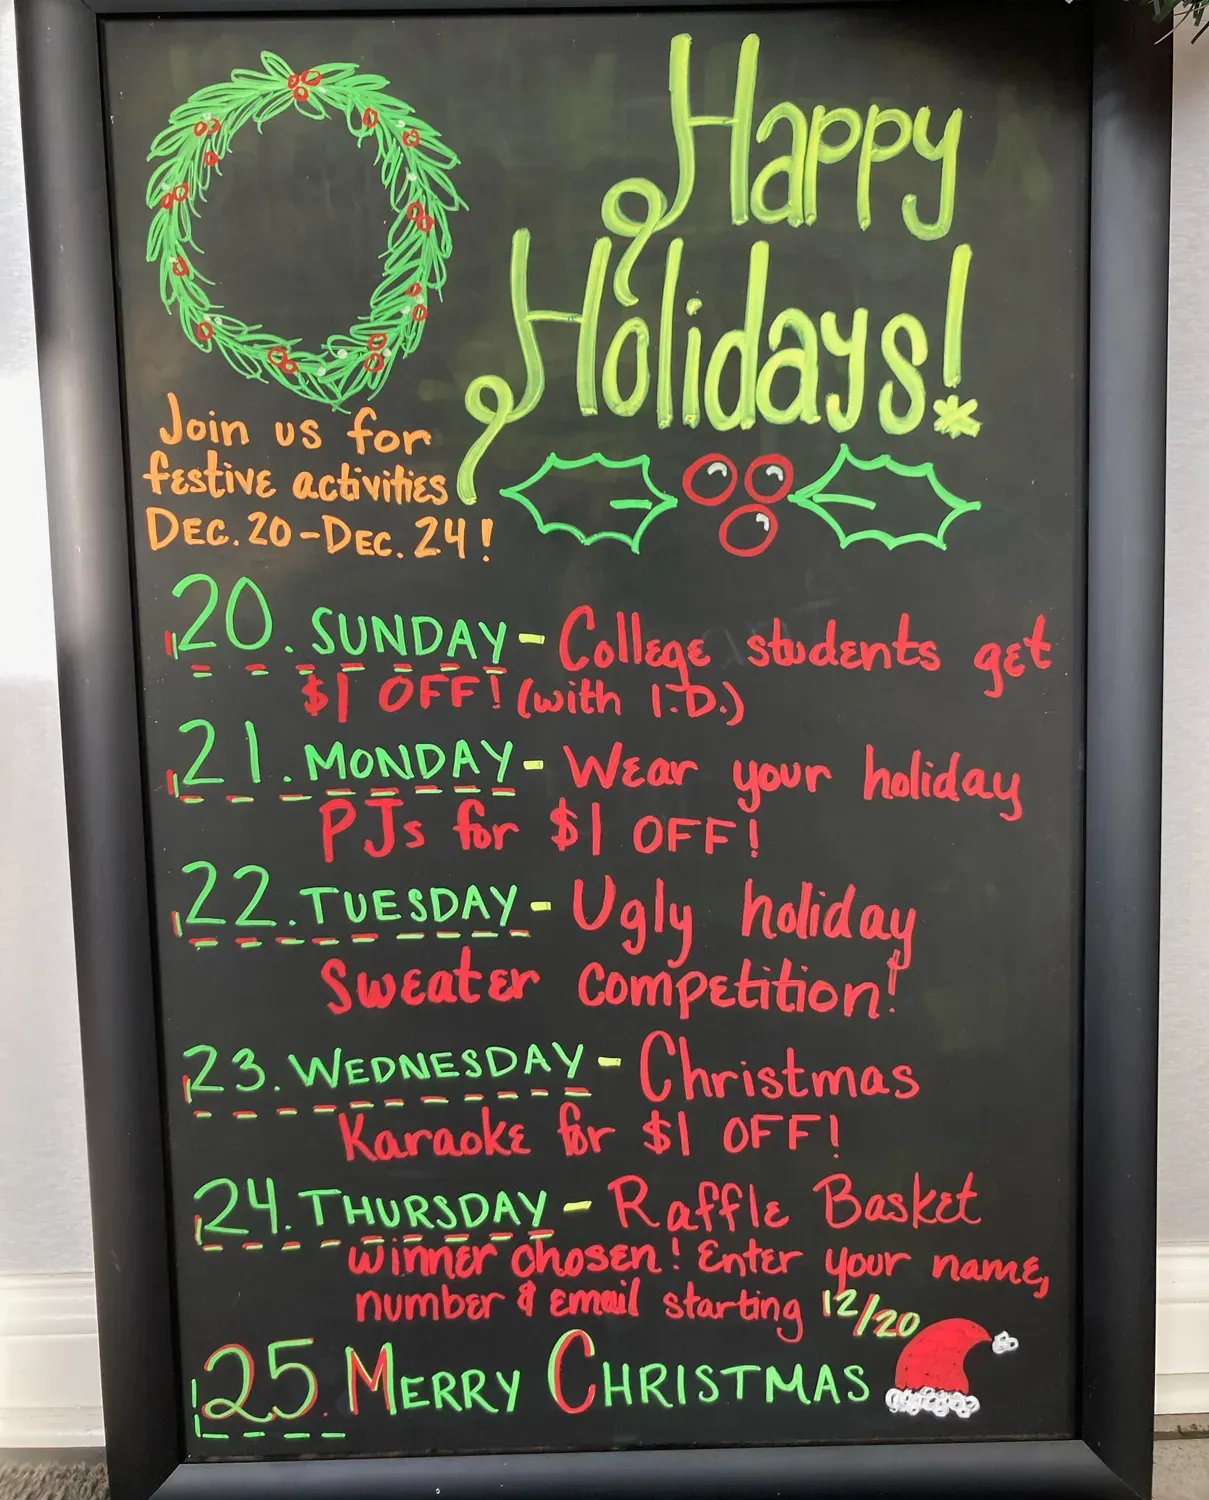 Happy
Holidays!
Join us for
festive activities
Dec. 20 - Dec. 24!
20. SUNDAY - College students get
$1 OFF! (with I.D.)
21. MONDAY - Wear your holiday
PJs for $1 OFF!
22. TUESDAY - Ugly holiday
Sweater competition!
23. WEDNESDAY - Christmas
Karaoke for $1 OFF!
24. THURSDAY - Raffle Basket
winner chosen! Enter your name,
number & email starting 12/20
25. MERRY CHRISTMAS